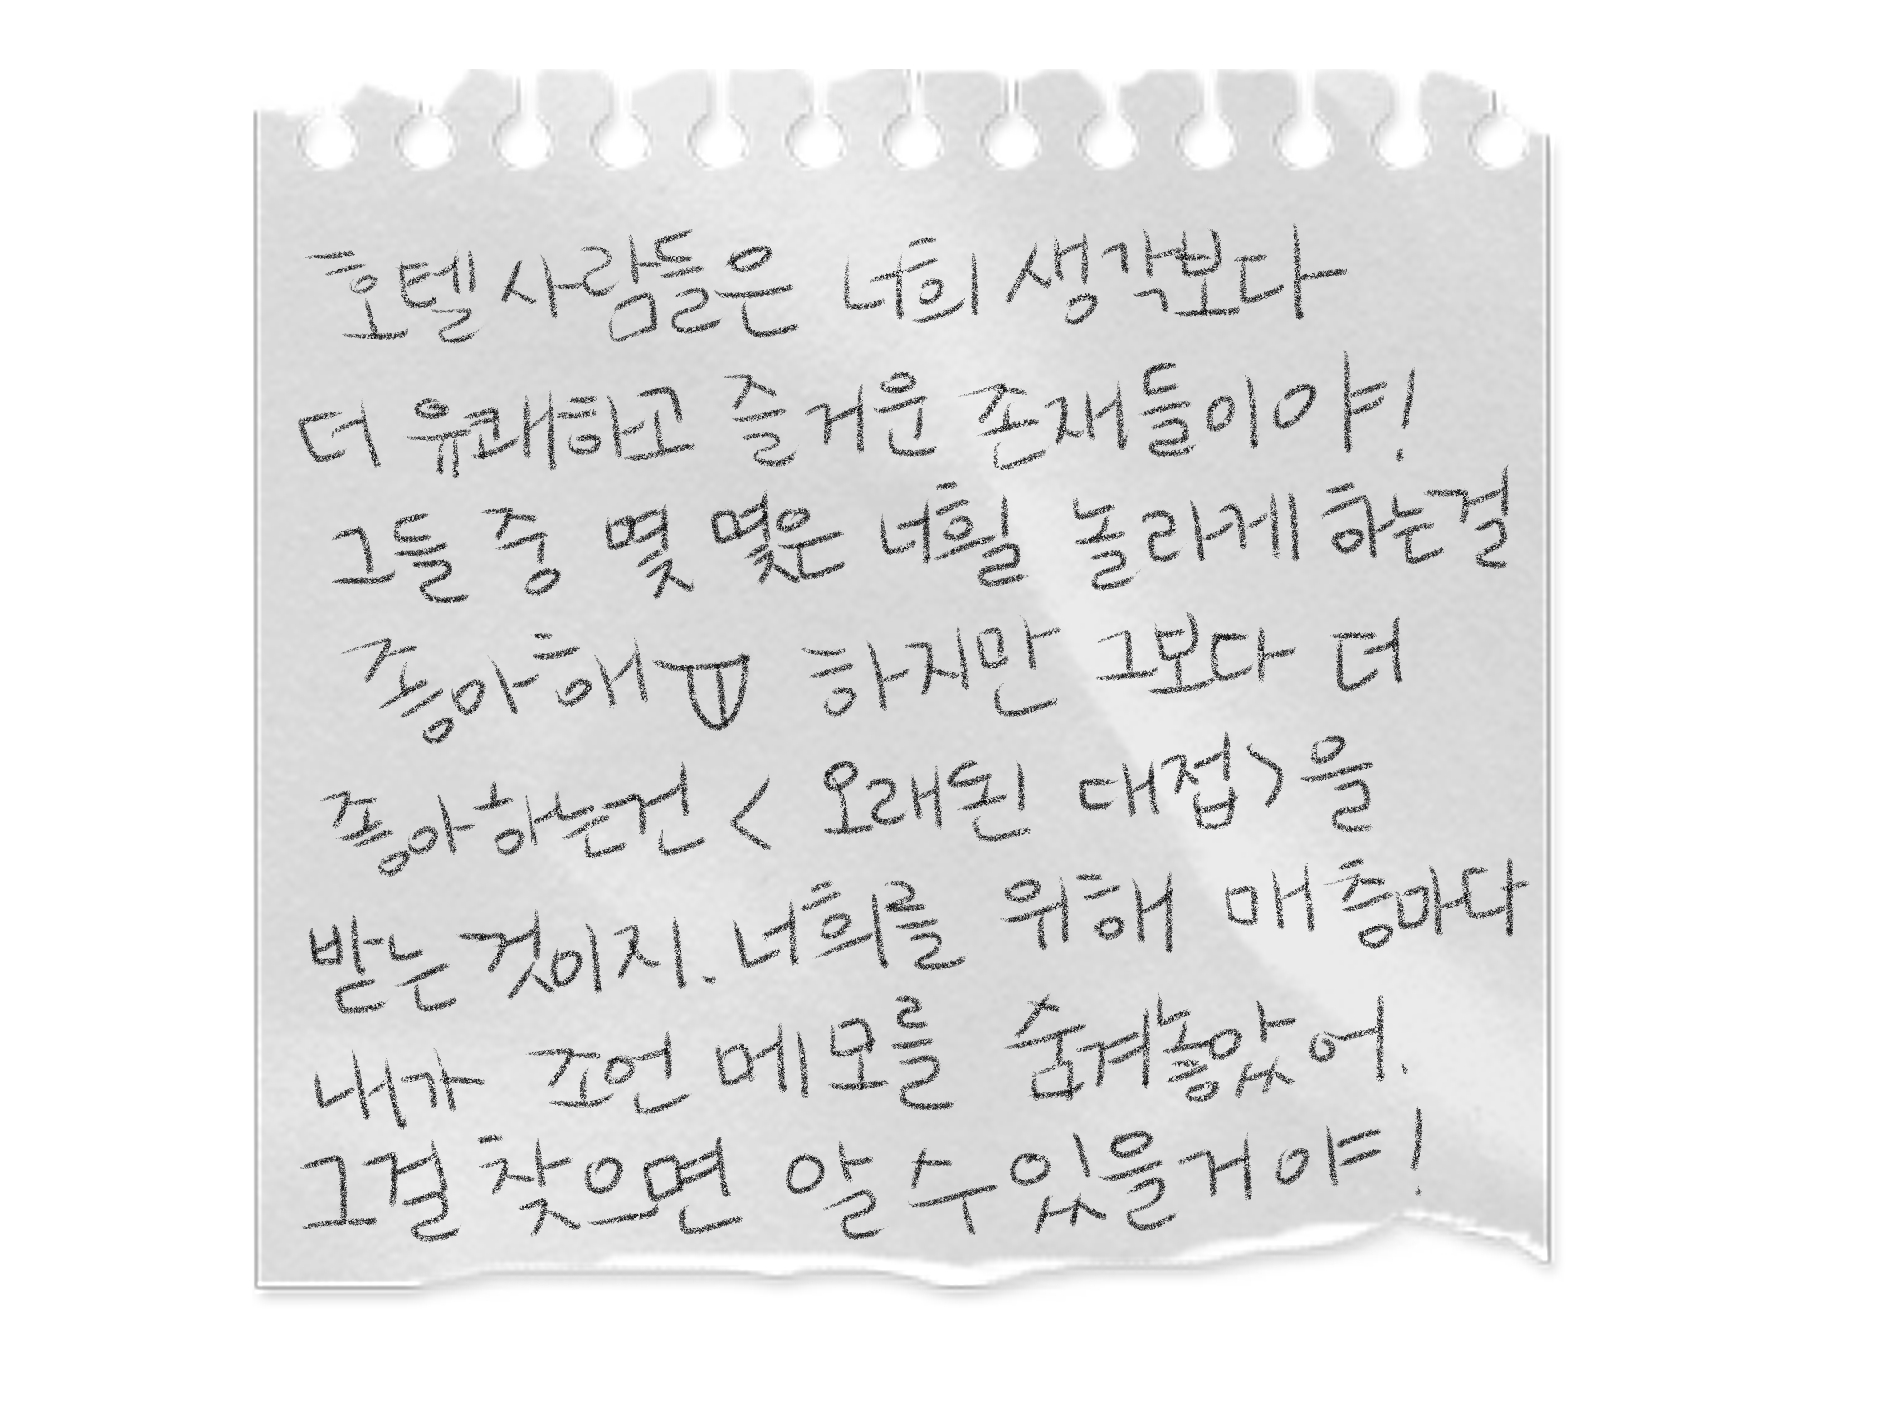 호텔 사람들은 너희 생각보다
더 유쾌하고 즐거운 존재들이야!
그들 중 몇 몇은 너흴 놀라게 하는걸
좋아해 하지만 그보다 더
좋아하는건 < 오래된 대접>을
받는 것이지. 너희를 위해 매 층마다
내가 조언 메모를 숨겨놓았어.
그걸 찾으면 알 수 있을거야!